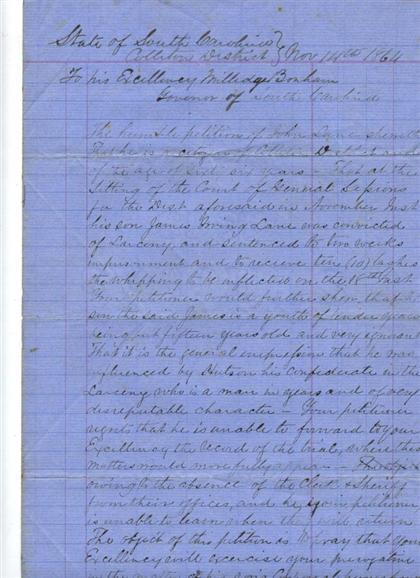 State of South Carolina }
Colleton District } Nov 14th 1864
To his Excellency Milledge Bonham
Governor of South Carolina
The humble petition of John Lane sheweth
That he is a citizen of Colleton Dist and
of the age of sixty six years - That at the
Sitting of the Court of General Sessions
for the Dist aforesaid in November Inst
his son James Irving Lane was convicted
of Larceny and Sentenced to two weeks
imprisonment and to receive ten (10) lashes
the whipping to be inflicted on the 18th Inst
Your petitioner would further shew that
son the said James is a youth of tender years
being but fifteen years old and very ignorant
That it is the general impression that he was
influenced by Hutson his confederate in the
Larceny who is a man in years and of very
disreputable character - Your petitioner
regrets that he is unable to forward to your
Excellency the record of the trial, where this
matter would more fully appear -
owing to the absence of the Clerk & Sheriff
from their offices, and he your petitioner
is unable to learn when they will return
The object of this petition is to pray that your
Excellency will exercise your prerogative